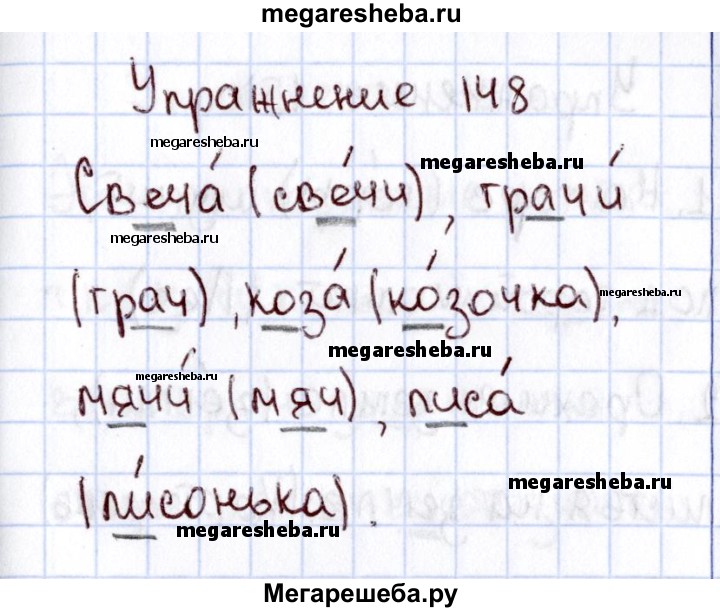 megaresheba.ru
Упражнение 148
megaresheba.ru
Свеча́ (све́чи), грачи́
megaresheba.ru
megaresheba.ru
(грач), коза́ (ко́зочка),
megaresheba.ru
megaresheba.ru
megaresheba.ru
мячи́ (мяч), лиса́
(ли́сонька).
megaresheba.ru
megaresheba.ru
Мегарешеба.ру